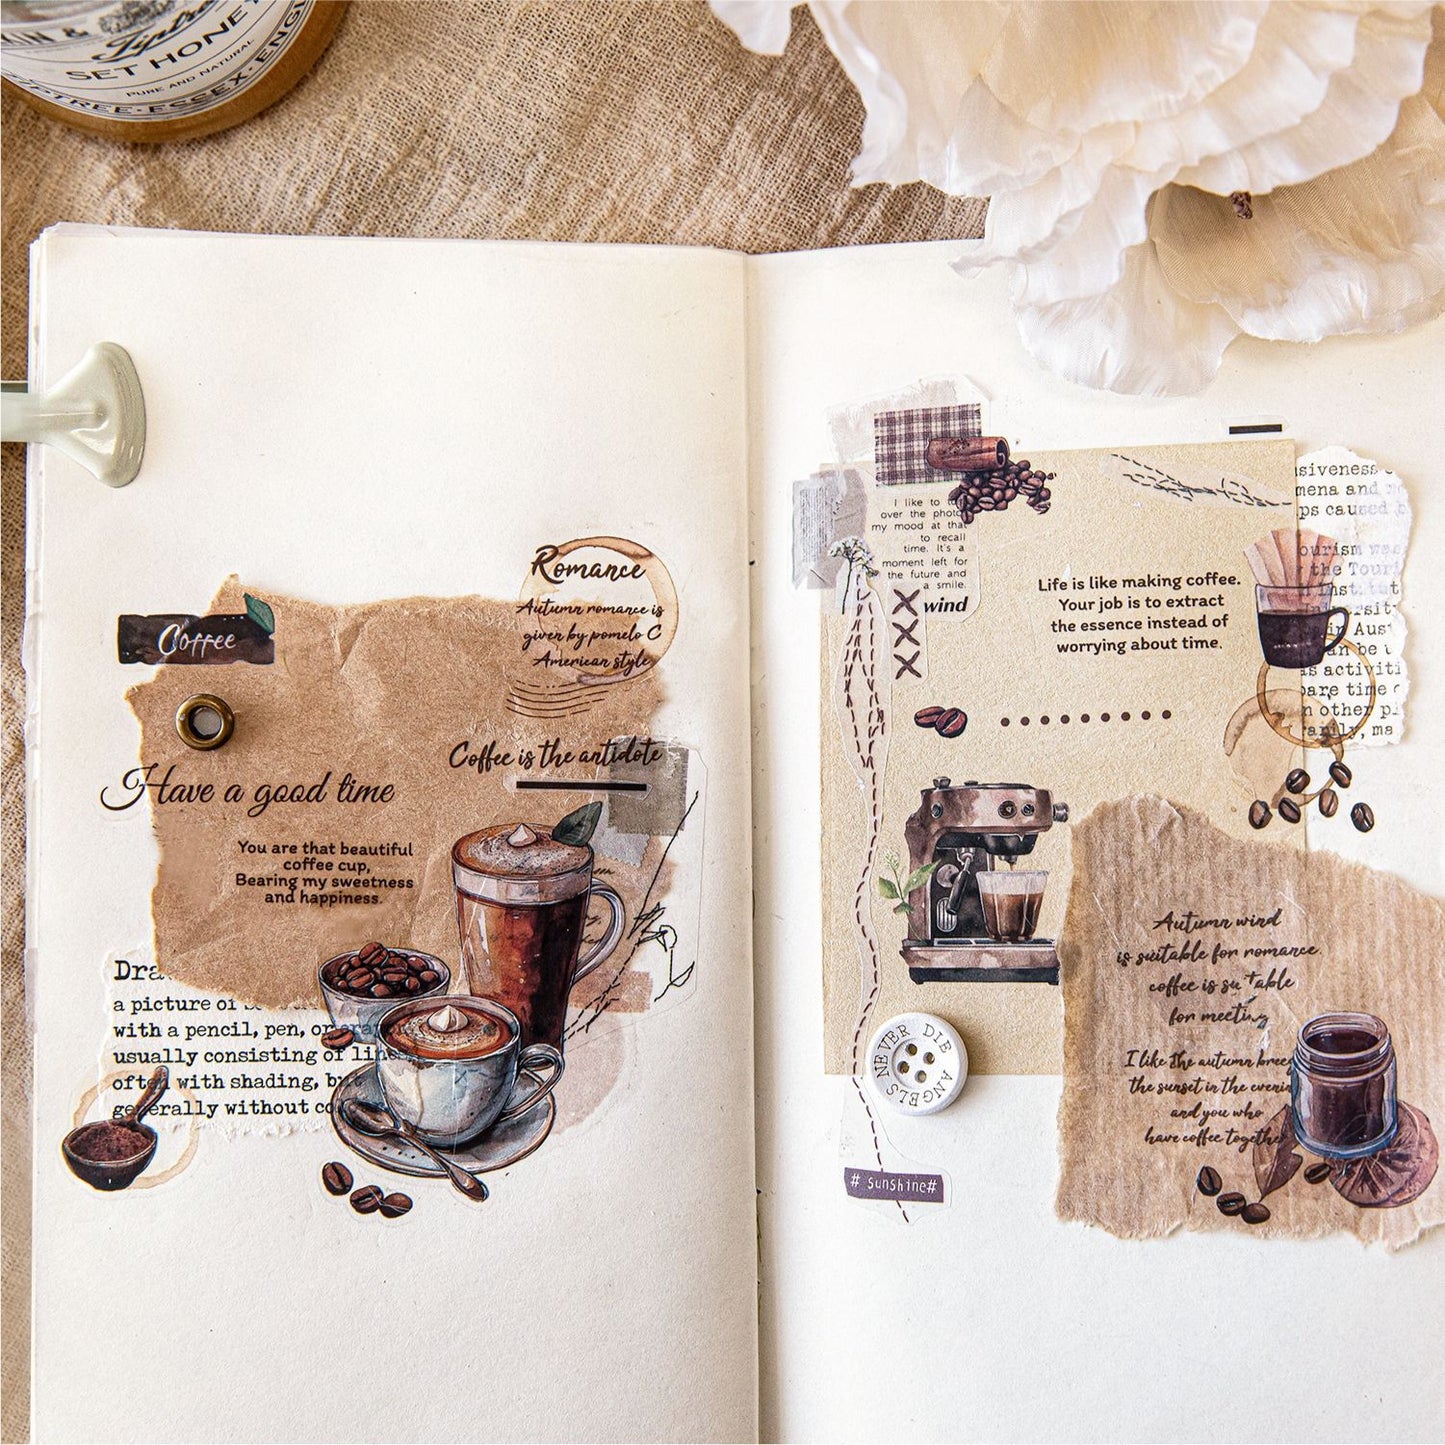 SET HONEY
PURE AND NATURAL
TIPTREE·ESSEX·ENGL
Coffee
Romance
Autumn romance is
given by pomelo C
American style
Coffee is the antidote
Have a good time
You are that beautiful
coffee cup,
Bearing my sweetness
and happiness.
Dra
a picture of
with a pencil, pen, or
usually consisting of lin
often with shading, but
generally without co
I like to
over the photo
my mood at that
to recall
time. It's a
moment left for
the future and
a smile.
wind
Life is like making coffee.
Your job is to extract
the essence instead of
worrying about time.
siveness
mena and
ps caused
ourism
the Touri
Aust
an be
s activiti
pare time
n other pl
rarily, ma
NEVER DIE ANGELS
# sunshine#
Autumn wind
is suitable for romance.
coffee is suitable
for meeting
I like the autumn breez
the sunset in the evenin
and you who
have coffee together